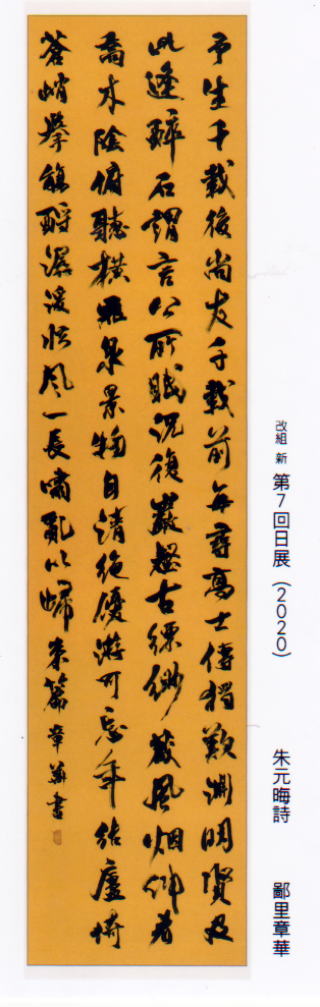 予生千載後尚友千載前每尋高士傳獨歎淵明賢及
此逢醉石謂言公所眠況復巖壑古縹緲藏風烟仰看
喬木陰俯聽横飛泉景物自清絶優游可忘年結廬倚
蒼峭擧觴酹潺湲臨風一長嘯亂以歸来篇 章華書
改組 新 第7回日展（2020） 朱元晦詩 鄙里章華